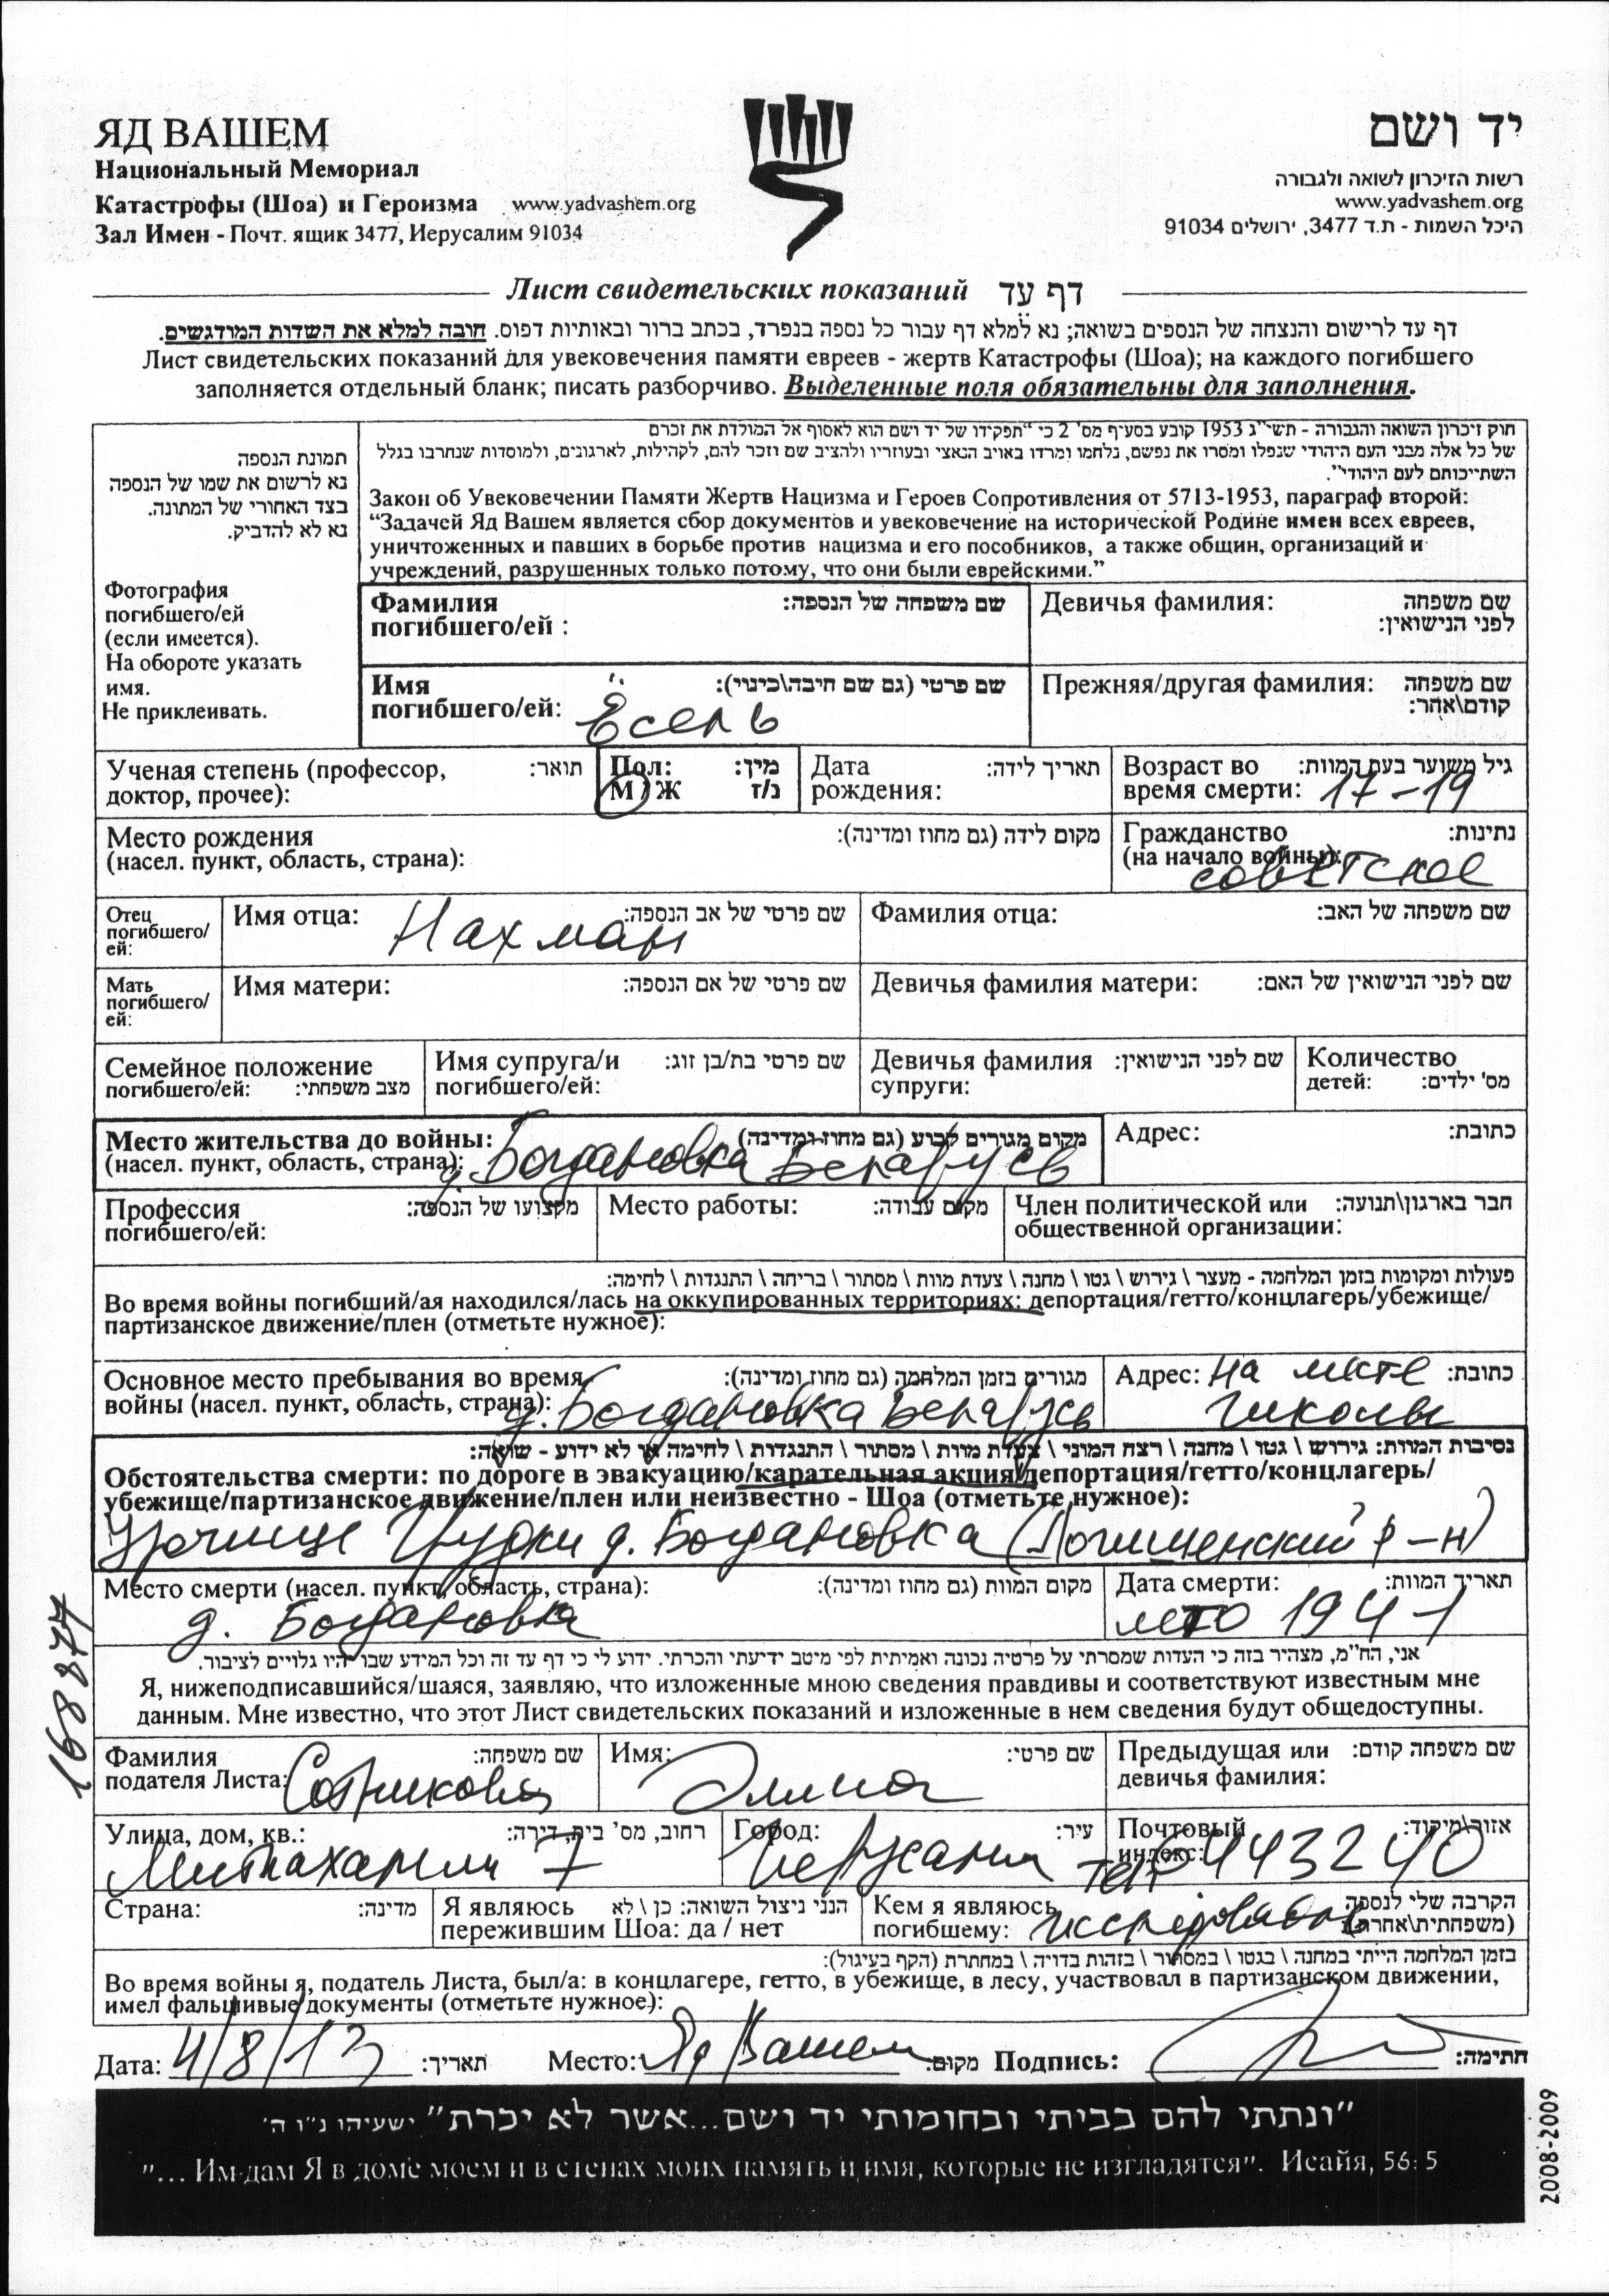 ЯД ВАШЕМ
Национальный Мемориал
Катастрофы (Шоа) и Героизма www.yadvashem.org
Зал Имен - Почт. ящик 3477, Иерусалим 91034
יד ושם
רשות הזיכרון לשואה ולגבורה
www.yadvashem.org
היכל השמות - ת.ד 3477, ירושלים 91034
Лист свидетельских показаний דף עד
דף עד לרישום והנצחה של הנספים בשואה; נא למלא דף עבור כל נספה בנפרד, בכתב ברור ובאותיות דפוס. חובה למלא את השדות המודגשים.
Лист свидетельских показаний для увековечения памяти евреев - жертв Катастрофы (Шоа); на каждого погибшего
заполняется отдельный бланк; писать разборчиво. Выделенные поля обязательны для заполнения.
תמונת הנספה
נא לרשום את שמו של הנספה
בצד האחורי של המתונה.
נא לא להדביק.
Фотография
погибшего/ей
(если имеется).
На обороте указать
имя.
Не приклеивать.
חוק זיכרון השואה והגבורה - תשי"ג 1953 קובע בסעיף מס' 2 כי "תפקידו של יד ושם הוא לאסוף אל המולדת את זכרם
של כל אלה מבני העם היהודי שנפלו ומסרו את נפשם, נלחמו ומרדו באויב הנאצי ובעוזריו ולהציב שם וזכר להם, לקהילות, לארגונים, ולמוסדות שנחרבו בגלל
השתייכותם לעם היהודי".
Закон об Увековечении Памяти Жертв Нацизма и Героев Сопротивления от 5713-1953, параграф второй:
“Задачей Яд Вашем является сбор документов и увековечение на исторической Родине имен всех евреев,
уничтоженных и павших в борьбе против нацизма и его пособников, а также общин, организаций и
учреждений, разрушенных только потому, что они были еврейскими.”
Фамилия שם משפחה של הנספה:
погибшего/ей :
Девичья фамилия: שם משפחה
לפני הנישואין:
Имя שם פרטי (גם שם חיבה\כינוי):
погибшего/ей: Ёсель
Прежняя/другая фамилия: שם משפחה
קודם\אחר:
Ученая степень (профессор, תואר:
доктор, прочее):
Пол: מין:
М / Ж ז/נ
Дата תאריך לידה:
рождения:
Возраст во גיל משוער בעת המוות:
время смерти: 17-19
Место рождения מקום לידה (גם מחוז ומדינה):
(насел. пункт, область, страна):
Гражданство נתינות:
(на начало войны): советское
Отец
погибшего/
ей:
Имя отца: Нахман שם פרטי של אב הנספה:
Фамилия отца: שם משפחה של האב:
Мать
погибшего/
ей:
Имя матери: שם פרטי של אם הנספה:
Девичья фамилия матери: שם לפני הנישואין של האם:
Семейное положение
погибшего/ей: מצב משפחתי:
Имя супруга/и שם פרטי בת/בן זוג:
погибшего/ей:
Девичья фамилия שם לפני הנישואין:
супруги:
Количество
детей: מס' ילדים:
Место жительства до войны: מקום מגורים קבוע (גם מחוז ומדינה)
(насел. пункт, область, страна): д. Богдановка Беларусь
Адрес: כתובת:
Профессия מקצועו של הנספה:
погибшего/ей:
Место работы: מקום עבודה:
Член политической или חבר בארגון\תנועה:
общественной организации:
פעולות ומקומות בזמן המלחמה - מעצר \ גירוש \ גטו \ מחנה \ צעדת מוות \ מסתור \ בריחה \ התנגדות \ לחימה:
Во время войны погибший/ая находился/лась на оккупированных территориях: депортация/гетто/концлагерь/убежище/
партизанское движение/плен (отметьте нужное):
Основное место пребывания во время מגורים בזמן המלחמה (גם מחוז ומדינה):
войны (насел. пункт, область, страна): д. Богдановка Беларусь
Адрес: на месте כתובת:
школы
נסיבות המוות: גירוש \ גטו \ מחנה \ רצח המוני \ צעדת מוות \ מסתור \ התנגדות \ לחימה או לא ידוע - שואה:
Обстоятельства смерти: по дороге в эвакуацию/карательная акция/депортация/гетто/концлагерь/
убежище/партизанское движение/плен или неизвестно - Шоа (отметьте нужное):
Урочище д. Богдановка (Логишенский р-н)
Место смерти (насел. пункт, область, страна): מקום המוות (גם מחוז ומדינה):
д. Богдановка
Дата смерти: תאריך המוות:
лето 1941
אני, הח"מ, מצהיר בזה כי העדות שמסרתי על פרטיה נכונה ואמיתית לפי מיטב ידיעתי והכרתי. ידוע לי כי דף עד זה וכל המידע שבו יהיו גלויים לציבור.
Я, нижеподписавшийся/шаяся, заявляю, что изложенные мною сведения правдивы и соответствуют известным мне
данным. Мне известно, что этот Лист свидетельских показаний и изложенные в нем сведения будут общедоступны.
Фамилия שם משפחה:
подателя Листа: Сотникова
Имя: Элина שם פרטי:
Предыдущая или שם משפחה קודם:
девичья фамилия:
Улица, дом, кв.: רחוב, מס' בית, דירה:
7
Город: Иерусалим עיר:
Почтовый אזור\מיקוד:
индекс: тел 6443240
Страна: מדינה:
Я являюсь הנני ניצול השואה: כן \ לא
пережившим Шоа: да / нет
Кем я являюсь הקרבה שלי לנספה
погибшему: исследователь (משפחתית\אחרת):
בזמן המלחמה הייתי במחנה \ בגטו \ במסתור \ בזהות בדויה \ במחתרת (הקף בעיגול):
Во время войны я, податель Листа, был/а: в концлагере, гетто, в убежище, в лесу, участвовал в партизанском движении,
имел фальшивые документы (отметьте нужное):
Дата: 4/8/13 תאריך: Место: Яд Вашем מקום: Подпись: חתימה:
"ונתתי להם בביתי ובחומותי יד ושם...אשר לא יכרת" ישעיהו נ"ו ה'
"... Им дам Я в доме моем и в стенах моих память и имя, которые не изгладятся". Исайя, 56: 5
168877
2008-2009